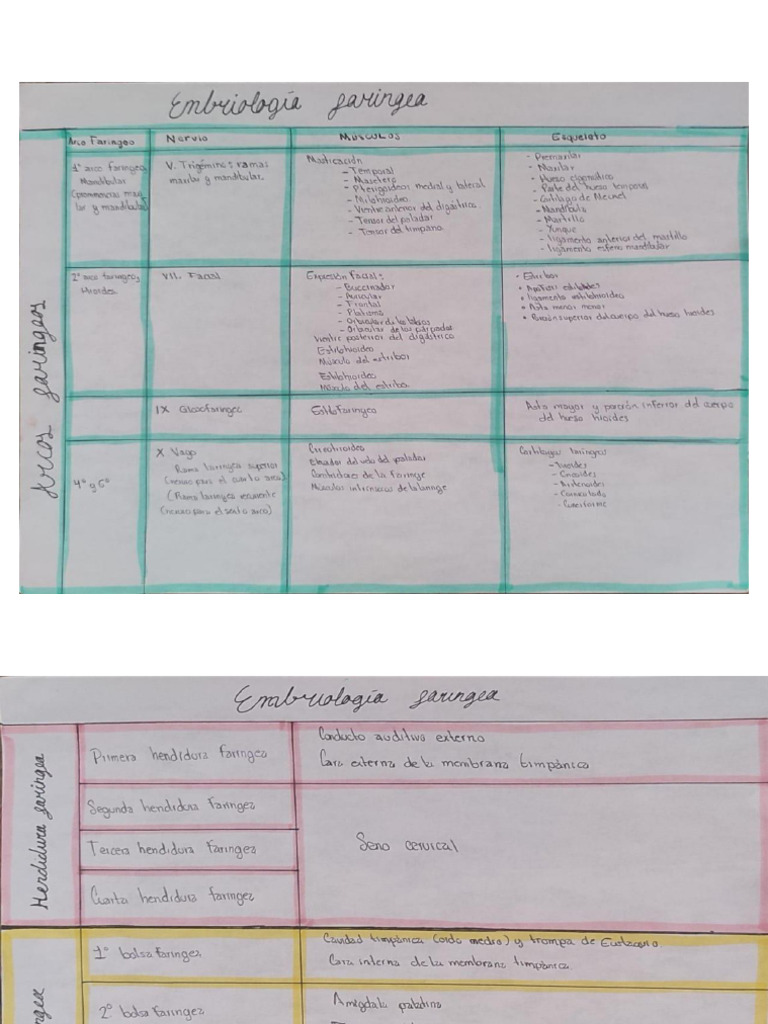 Embriología faríngea
Arcos faríngeos
Arco Faríngeo
Nervio
Músculos
Esqueleto
1° arco faríngeo,
Mandibular
(prominencias maxi
lar y mandibular)
V. Trigémino: ramas
maxilar y mandibular.
Masticación
- Temporal
- Masetero
- Pterigoideos medial y lateral
- Milohioideo
- Vientre anterior del digástrico
- Tensor del paladar
- Tensor del tímpano.
- Premaxilar
- Maxilar
- Hueso cigomático
- Parte del hueso temporal
- Cartílago de Meckel
- Mandíbula
- Martillo
- Yunque
- ligamento anterior del martillo
- ligamento esfeno mandibular
2° arco faríngeo,
Hioides.
VII. Facial
Expresión Facial:
- Buccinador
- Auricular
- Frontal
- Platisma
- Orbicular de los labios
- Orbicular de los párpados
Vientre posterior del digástrico
Estilohioideo
Músculo del estribo
Estilohioideo
Músculo del estribo.
• Estribo
• Apófisis estiloides
• ligamento estilohioideo
• Asta menor
• Porción superior del cuerpo del hueso hioides
IX Glosofaríngeo
Estilofaríngeo
Asta mayor y porción inferior del cuerpo
del hueso hioides
4° y 6°
X Vago
Rama laríngea superior
(nervio para el cuarto arco)
(Rama laríngea recurrente
(nervio para el sexto arco)
Cricotiroideo
Elevador del velo del paladar
Constrictores de la Faringe
Músculos intrínsecos de la laringe
Cartílagos laríngeos
- Tiroides
- Cricoides
- Aritenoides
- Corniculado
- Cuneiforme
Embriología faríngea
Hendidura faríngea
Primera hendidura faríngea
Conducto auditivo externo
Cara externa de la membrana timpánica
Segunda hendidura faríngea
Tercera hendidura faríngea
Seno cervical
Cuarta hendidura faríngea
1° bolsa faríngea
Cavidad timpánica (oído medio) y trompa de Eustaquio
Cara interna de la membrana timpánica.
2° bolsa faríngea
Amígdala palatina